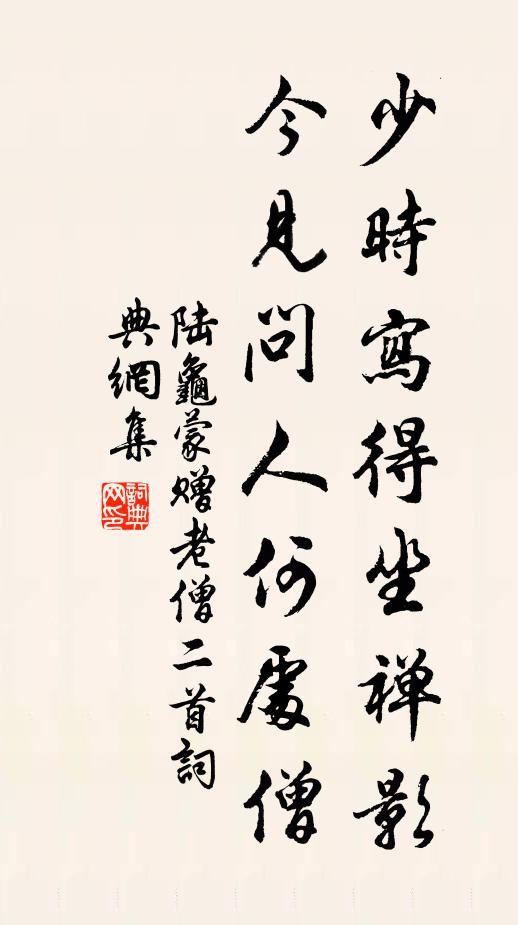 少時寫得坐禅影
今見問人何處僧
陆龜蒙赠老僧二首詞
典網集
詞典网印